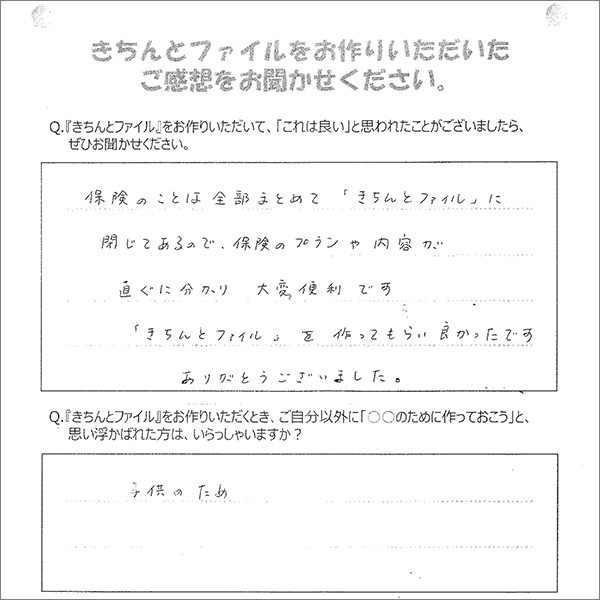 きちんとファイルをお作りいただいた
ご感想をお聞かせください。
Q.『きちんとファイル』をお作りいただいて、「これは良い」と思われたことがございましたら、
ぜひお聞かせください。
保険のことは全部まとめて「きちんとファイル」に
閉じてあるので、保険のプランや内容が
直ぐに分かり 大変便利です
「きちんとファイル」を作ってもらい良かったです
ありがとうございました。
Q.『きちんとファイル』をお作りいただくとき、ご自分以外に「○○のために作っておこう」と、
思い浮かばれた方は、いらっしゃいますか？
子供のため